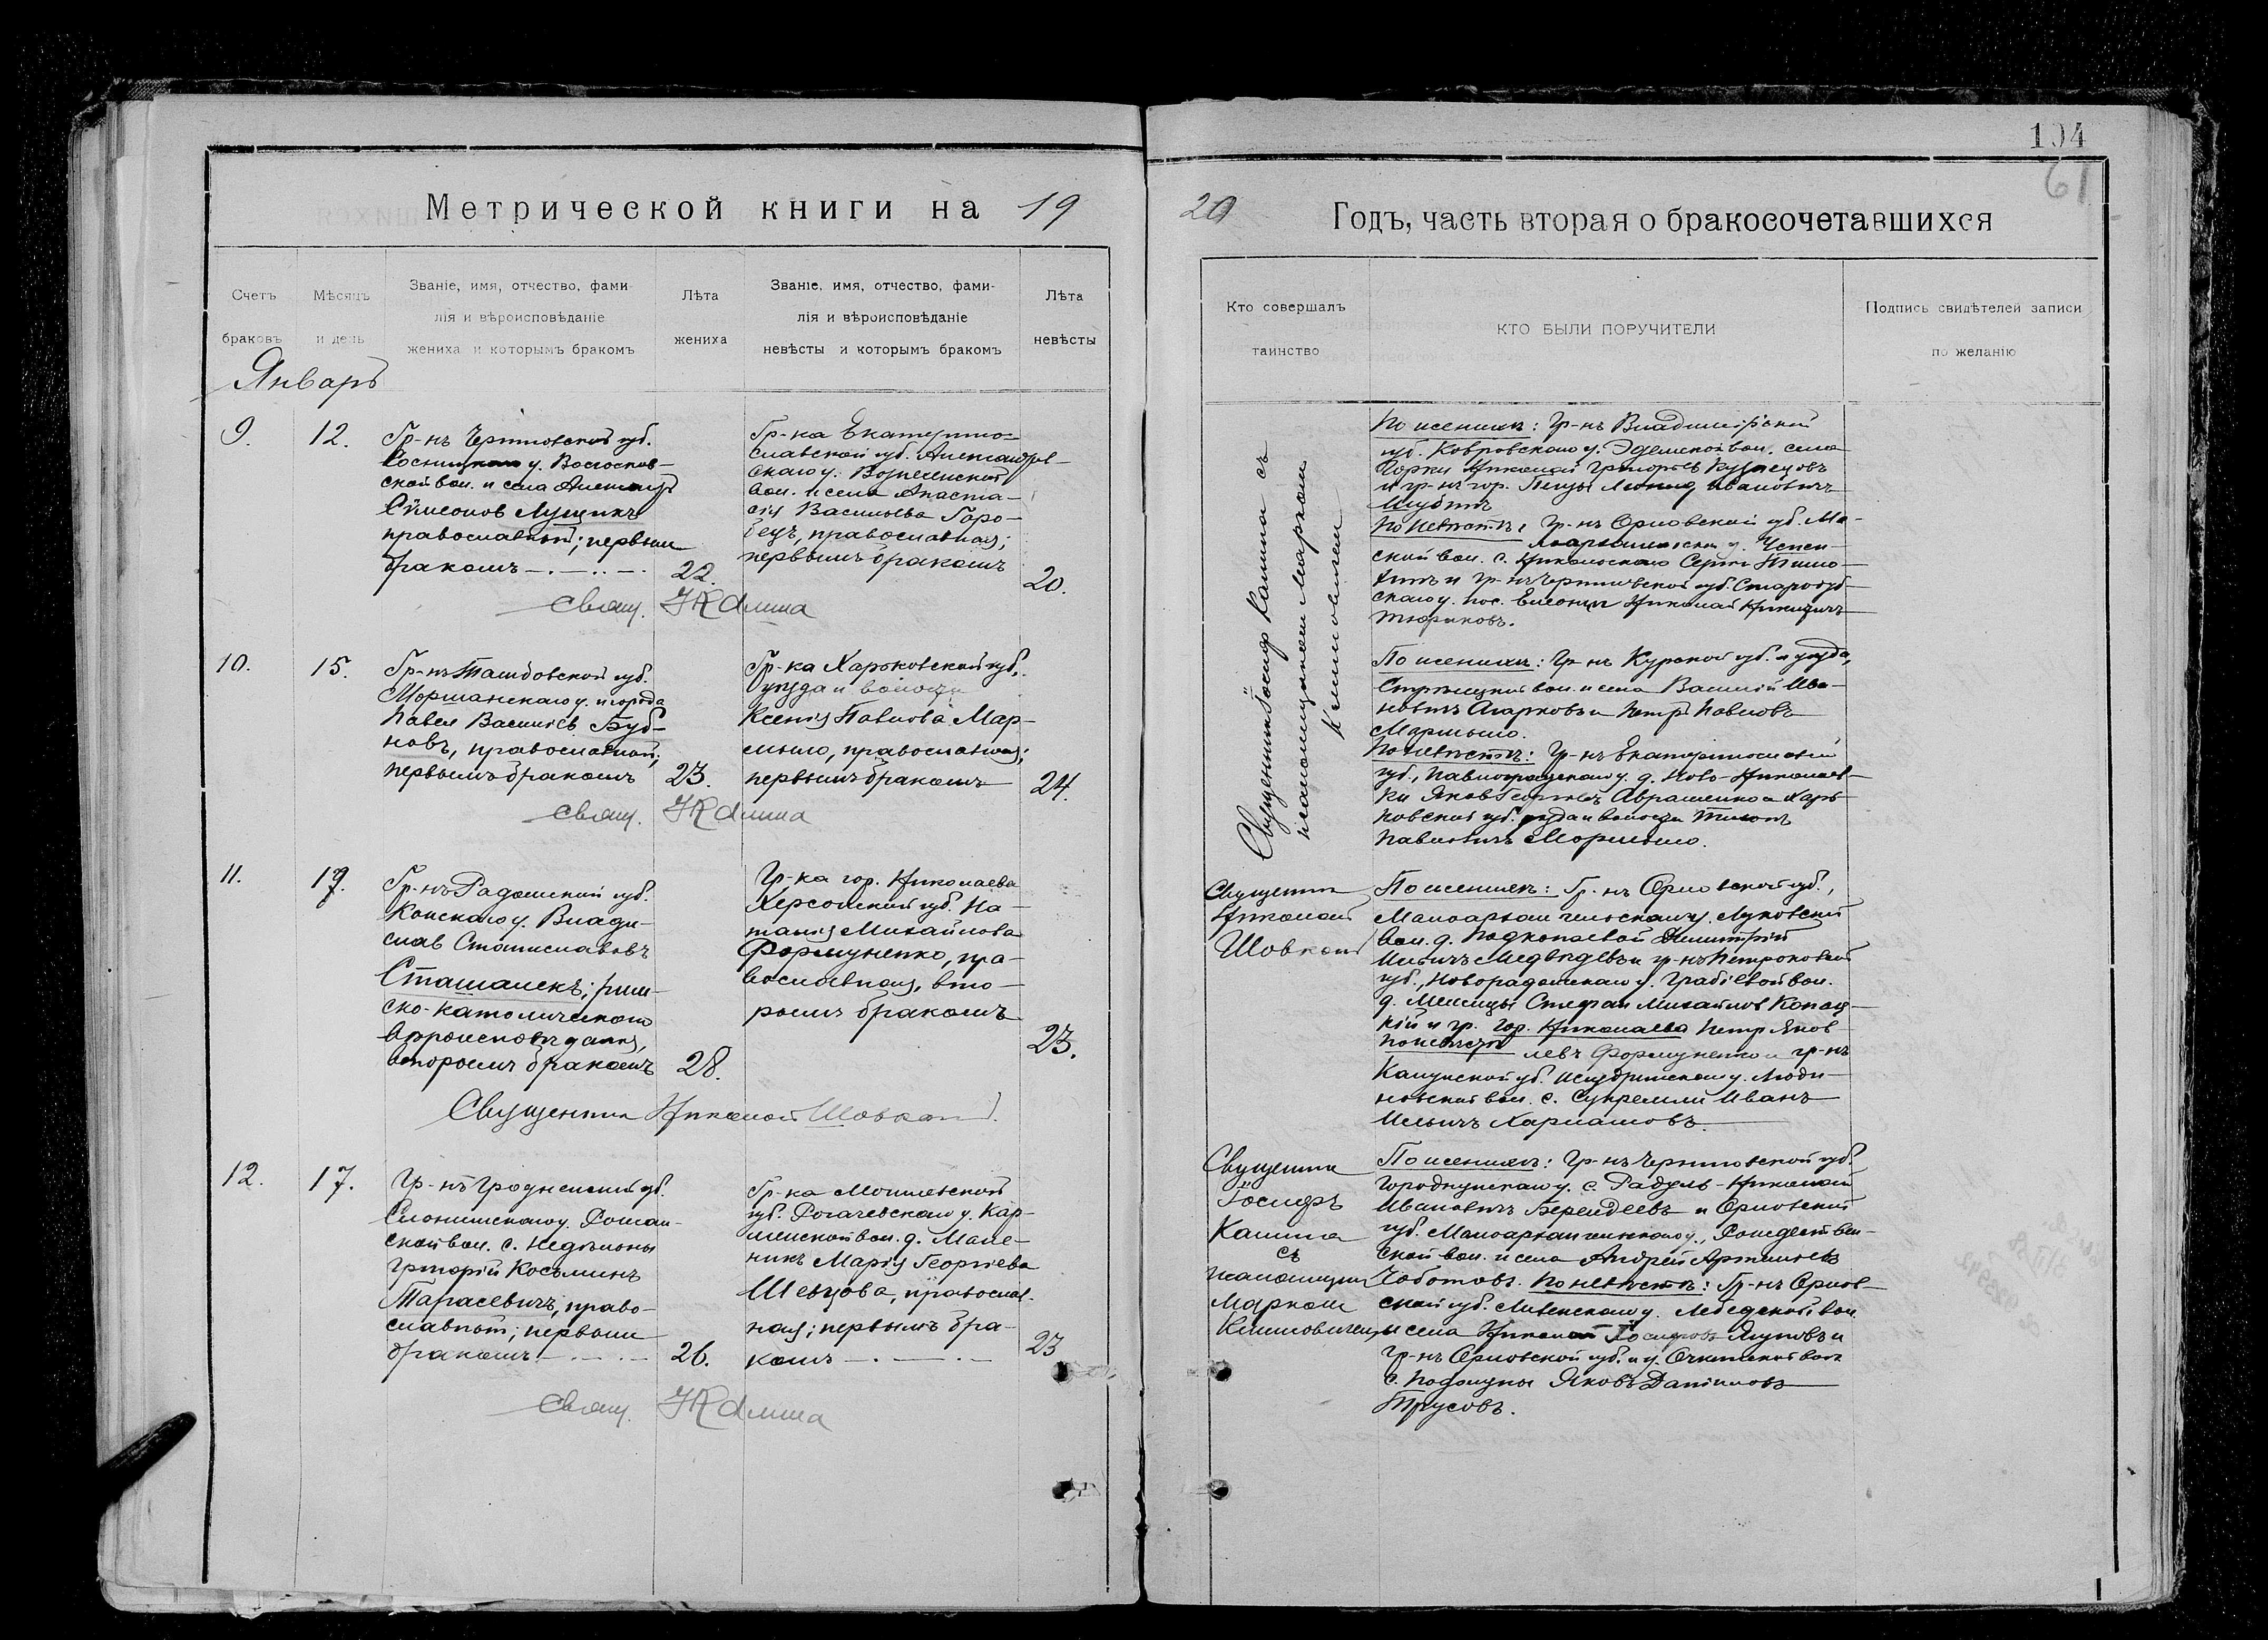 104
61
Метрической книги на 19
20 Годъ, часть вторая о бракосочетавшихся
Счетъ
браковъ
Мѣсяцъ
и день
Званіе, имя, отчество, фами-
лія и вѣроисповѣданіе
жениха и которымъ бракомъ
Лѣта
жениха
Званіе, имя, отчество, фами-
лія и вѣроисповѣданіе
невѣсты и которымъ бракомъ
Лѣта
невѣсты
Кто совершалъ
таинство
КТО БЫЛИ ПОРУЧИТЕЛИ
Подпись свидѣтелей записи
по желанію
Январь
9.
12.
Гр-нъ Черниговской губ.
Сосницкаго у.
ской вол. и села
Симеонов Лущикъ
православный; первым
бракомъ
22.
Гр-ка Екатерино-
славской губ. Александров-
скаго у. Вознесенской
вол. и села Анаста-
сія Васильева Горо-
бецъ, православная;
первымъ бракомъ
20.
Свящ. І Калина
Священник Іосиф Калина съ
псаломщиком Марком
Климовичем
По женихъ: Гр-нъ Владимірской
губ. Ковровскаго у. Эдемской вол. села
Горки Николай Григорьев Кузнецовъ
и гр-нъ гор. Пензы Леонид Иванович
По невѣстѣ: Гр-нъ Орловской губ. Ма-
лоархангельскаго у.
ской вол. с. Никольскаго Сергей
и гр-нъ Черниговской губ. Стародуб-
скаго у. пос. Николай Никитичъ
10.
15.
Гр-нъ Тамбовской губ.
Моршанскаго у. и города
Павел Васильев Буб-
новъ, православный;
первымъ бракомъ
23.
Гр-ка Харьковской губ.
уезда и волости
Ксенія Павлова Мар-
мыло, православная;
первымъ бракомъ
24.
Свящ. І Калина
По женихъ: Гр-нъ Курской губ. и уезда,
Стрѣлецкой вол. и села Василій Ива-
новичъ Агарковъ и Петр Павловъ
Мармыло.
По невѣстѣ: Гр-нъ Екатеринославской
губ., Павлоградскаго у. д. Ново-Николаев-
ки Яков Георгіевъ Авраменко и Харь-
ковской губ. уезда и волости Тихонъ
Павловичъ Мармыло.
11.
17.
Гр-нъ Радомской губ.
Конскаго у. Влади-
слав Станиславовъ
Сташалекъ; рим-
ско-католическаго
вѣроисповѣданія,
вторымъ бракомъ
28.
Гр-ка гор. Николаева
Херсонской губ. На-
талія Михайлова
Формуненко, пра-
вославная, вто-
рымъ бракомъ
23.
Священник Николай Шовкопл
Священник
Николай
Шовкопл
По женихъ: Гр-нъ Орловской губ.,
Малоархангельскаго у. Луковской
вол. д. Подкопаевой Димитрій
Ильичъ Медвѣдевъ и гр-нъ Петроковской
губ., Новорадомскаго у. вол.
д. Стефан Михайлов
кій и гр. гор. Николаева Петр Яков-
По невѣстѣ левъ Формуненко и гр-нъ
Калужской губ. Жиздринскаго у. Люди-
новской вол. с. Сукремли Иванъ
Ильичъ Харламовъ
12.
17.
Гр-нъ Гродненской губ.
Слонимскаго у. Роман-
ской вол. с.
Григорій Косьминъ
Тарасевичъ, право-
славный; первым
бракомъ
26.
Гр-ка Могилевской
губ. Рогачевскаго у. Кар-
пиловской вол. д. Мале-
викъ Марія Георгіева
Шевцова, православ-
ная; первымъ бра-
комъ
23
Свящ. І Калина
Священник
Іосифъ
Калина
съ
псаломщик
Марком
Климовичем
По женихъ: Гр-нъ Черниговской губ.
Городнянскаго у. с. Радуль-Николай
Ивановичъ Берендеевъ и Орловской
губ. Малоархангельскаго у., Рождествен-
ской вол. и села Андрей Артемьевъ
Чоботовъ. По невѣстѣ: Гр-нъ Орлов-
ской губ. Ливенскаго у. Лебедской вол.
и села Николай Іосифовъ Якуновъ и
гр-нъ Орловской губ. и у. вол.
с. Яковъ Даніиловъ
Трусовъ.